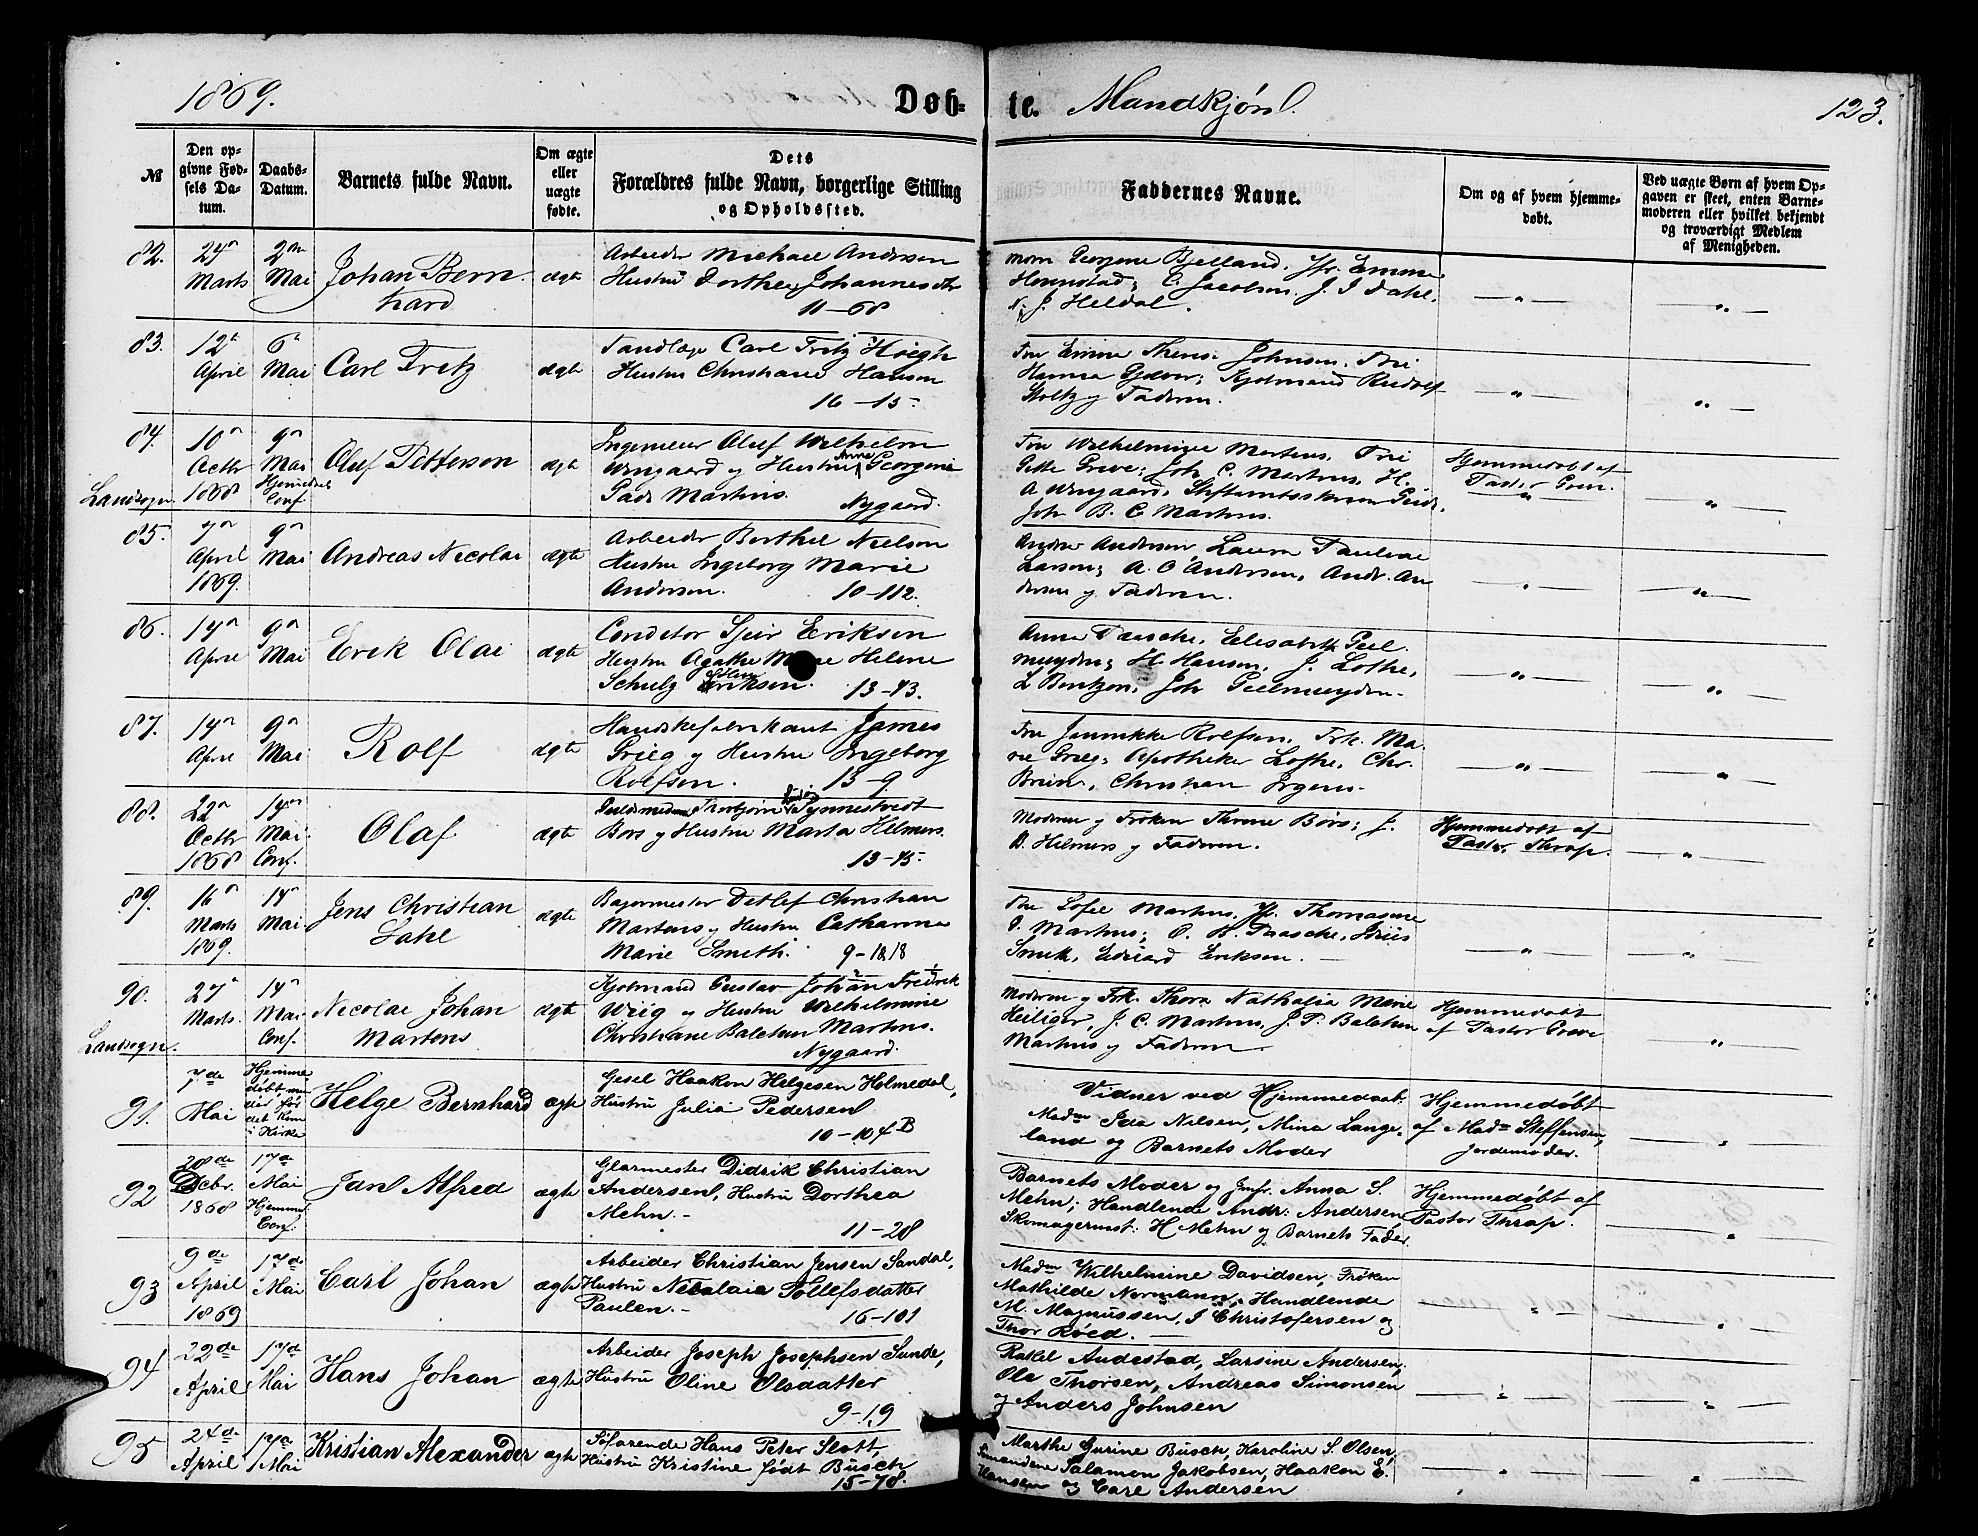 1869.
Døb-
te.
Mandkjøn.
123.
№
Den op-
givne Fød-
sels Da-
tum.
Daabs-
Datum.
Barnets fulde Navn.
Om ægte
eller
uægte
fødte.
Dets
Forældres fulde Navn, borgerlige Stilling
og Opholdssted.
Faddernes Navne.
Om og af hvem hjemme-
døbt.
Ved uægte Børn af hvem Op-
gaven er skeet, enten Barne-
moderen eller hvilket bekjendt
og troværdigt Medlem
af Menigheden.
82.
24
Marts
2den
Mai
Johan Bern-
hard
ægte
Arbeider Michael Andersen
Hustru Dorthea Johannesdtr
11-68
Georgine Bjelland, Jfr. Emma
C. Jacobsen, J. J. Dahl,
J. Heldal.
83.
12
April
6
Mai
Carl Fritz
ægte
Tandlæge Carl Fritz Høegh
Hustru Christiane Hansen
16-15
Fru Emma Johnsen, Frk
Hanna Gjever; Kjøbmand Rudolf
Stoltz og Faderen.
84.
Landsogn
10
Octbr
1868
9
Mai
Hjemmed.
Conf.
Oluf Petterson
ægte
Ingenieur Oluf Wilhelm
Wingaard og Hustru Anne Georgine
Martens. Nygaard.
Fru Wilhelmine Martens, Frk
Greve; Joh. C. Martens, H.
A. Wingaard,
Joh. B. C. Martens.
Hjemmedøbt af
Pastor Greve.
85.
7
April
1869.
9
Mai
Andreas Nicolai
ægte
Arbeider Berthel Nielsen
Hustru Ingeborg Marie
Andersen. 10-112.
Andersen, Laura Pauline
Larsen; A. O. Andersen, Andr. An-
dersen og Faderen.
86.
14
April
9
Mai
Erik Olai
ægte
Conditor Sjur Eriksen
Hustru Agathe Marie Helene
Schulz Eriksen. 13-43.
Anna Paasche, Elisabeth Peel-
muyden; H. Hansen, J. Lothe,
L. Bentzon, Joh. Peelmuyden.
87.
14
April
9
Mai
Rolf
ægte
Handskefabrikant James
Grieg og Hustru Ingeborg
Rolfsen. 13-9.
Fru Jannikke Rolfsen, Frk. Ma-
rie Grieg; Apotheker Lothe, Chr.
Christian Irgens.
88.
22
Octbr
1868
14
Mai
Conf.
Olaf
ægte
Guldsmed Thorbjørn Tynnestvedt
Børs og Hustru Marta Helmers.
13-45
Moderen og Frøken Thrine Børs; J.
D. Helmers og Faderen.
Hjemmedøbt af
Pastor Thrap.
89.
16
Marts
1869.
14
Mai
Jens Christian
Dahl
ægte
Bagermester Detlef Christian
Martens og Hustru Catharina
Marie Smeth. 9-1818
Fru Sofie Martens, Jfr. Thomasine
Martens; O. B. Paasche,
Smith, Edvard Eriksen.
90.
Landsogn.
27
Marts
14
Mai
Conf.
Nicolai Johan
Martens
ægte
Kjøbmand Gustav Johan Fredrik
Wiig og Hustru Wilhelmine
Christiane Balchen Martens.
Nygaard.
Moderen og Frk. Thora Nathalia Marie
Heiliger, J. C. Martens, J. P. Balchen
Martens og Faderen
Hjemmedøbt
af Pastor Greve
91.
7de
Mai
Hjemme
døbt, men
død før
det kom
i Kirke
Helge Bernhard
ægte
Gesel Haakon Helgesen Holmedal,
Hustru Julia Pedersen
10-104B
Vidner ved Hjemmedaab:
Madm Ida Nilsen, Mina Lange-
land og Barnets Moder
Hjemmedøbt
af Madm Steffensen,
Jordemoder.
92
28de
Dcbr.
1868
17de
Mai
Hjemme
Conf.
Janl Alfred
ægte
Glarmester Didrik Christian
Andersen, Hustru Dorthea
Mehn.-
11-28
Barnets Moder og Jmfr. Anna S.
Mehn; Handlende Andr: Andersen
Skomagermst. H Mehn og Barnets Fader.
Hjemmedøbt af
Pastor Thrap.
93
9de
April
1869
17de
Mai
Carl Johan
ægte
Arbeider Christian Jensen Sandal,
Hustru Nicolaia Tollefsdatter
Paulen.-
16-101
Madm Wilhelmine Davidsen, Frøken
Mathilde Normann, Handlende
M. Magnussen, J Christofersen og
Thor Røed.
94
22de
April
17de
Mai
Hans Johan
ægte
Arbeider Joseph Josephsen Sunde,
Hustru Oline Olsdatter
9-19
Rakel Audestad, Larsine Andersen;
Ole Thorsen, Andreas Simonsen
og Anders Johnsen
95
24de
April
17de
Mai
Kristian Alexander
ægte
Søfarende Hans Peter Slott,
Hustru Kristine født Busch
15-78.
Marthe Gurine Busch, Karoline S. Olsen,
Salamon Jakobsen, Haakon E.
Hansen og Carl Andersen